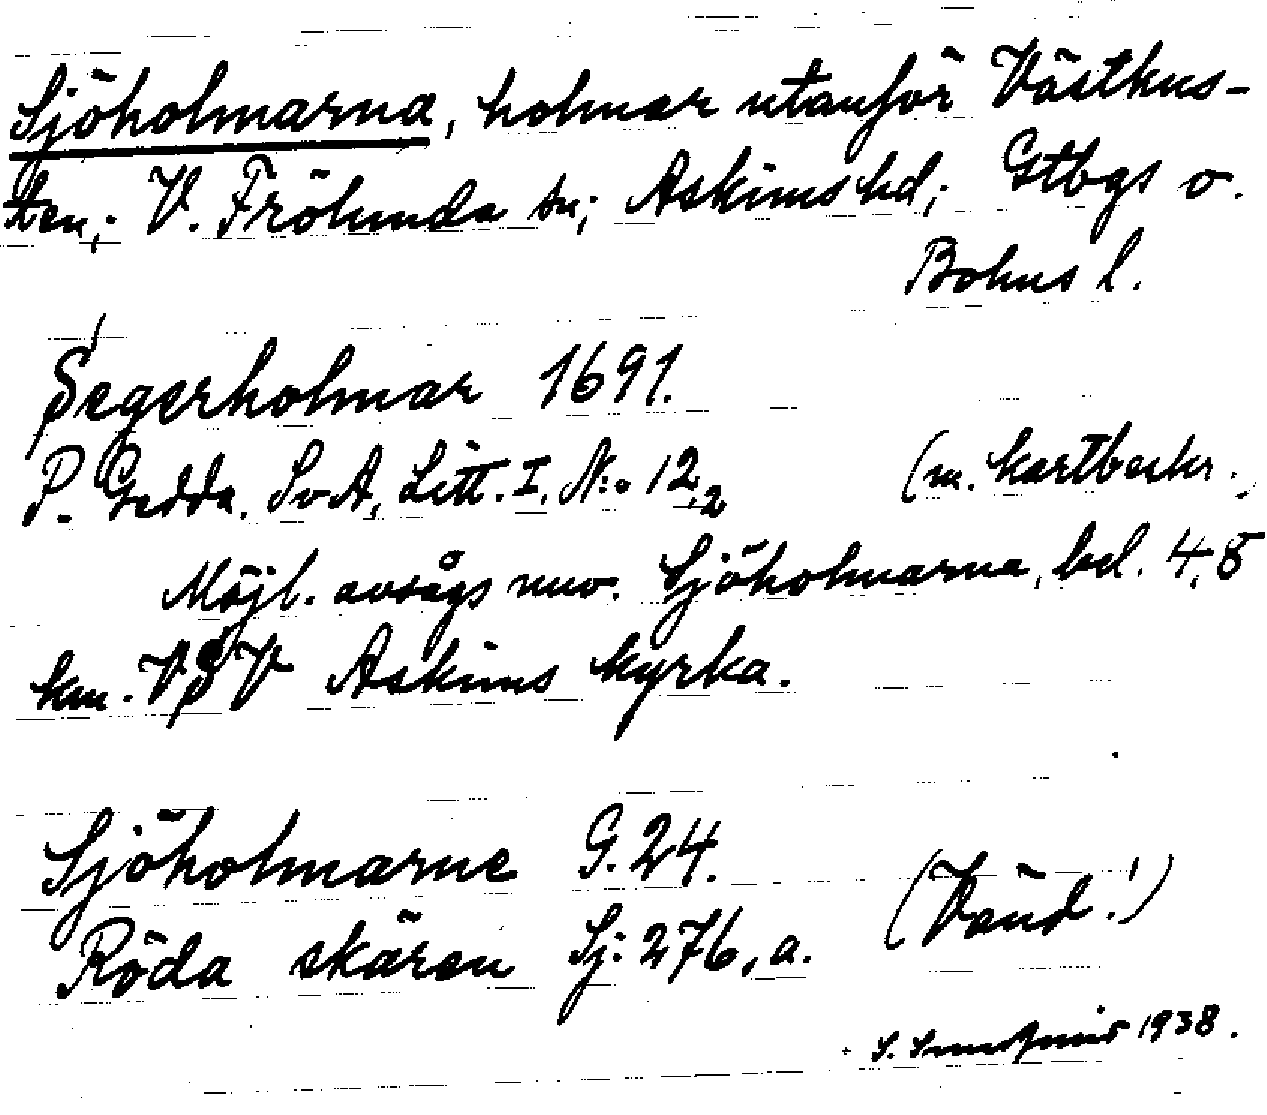 Sjöholmarna, holmar utanför Västkus-
ten; V. Frölunda sn; Askims hd; Gtbgs o.
Bohus l.
Segerholmar 1691.
P. Gedda. SvA, Litt. I. N:o 12,2 (m. kartbeskr.)
Möjl. avsågs nuv. Sjöholmarna, bel. 4,8
km. VSV Askims kyrka.
Sjöholmarne G. 24.
Röda skären Sj: 276, a. (Vänd!)
S. 1938.